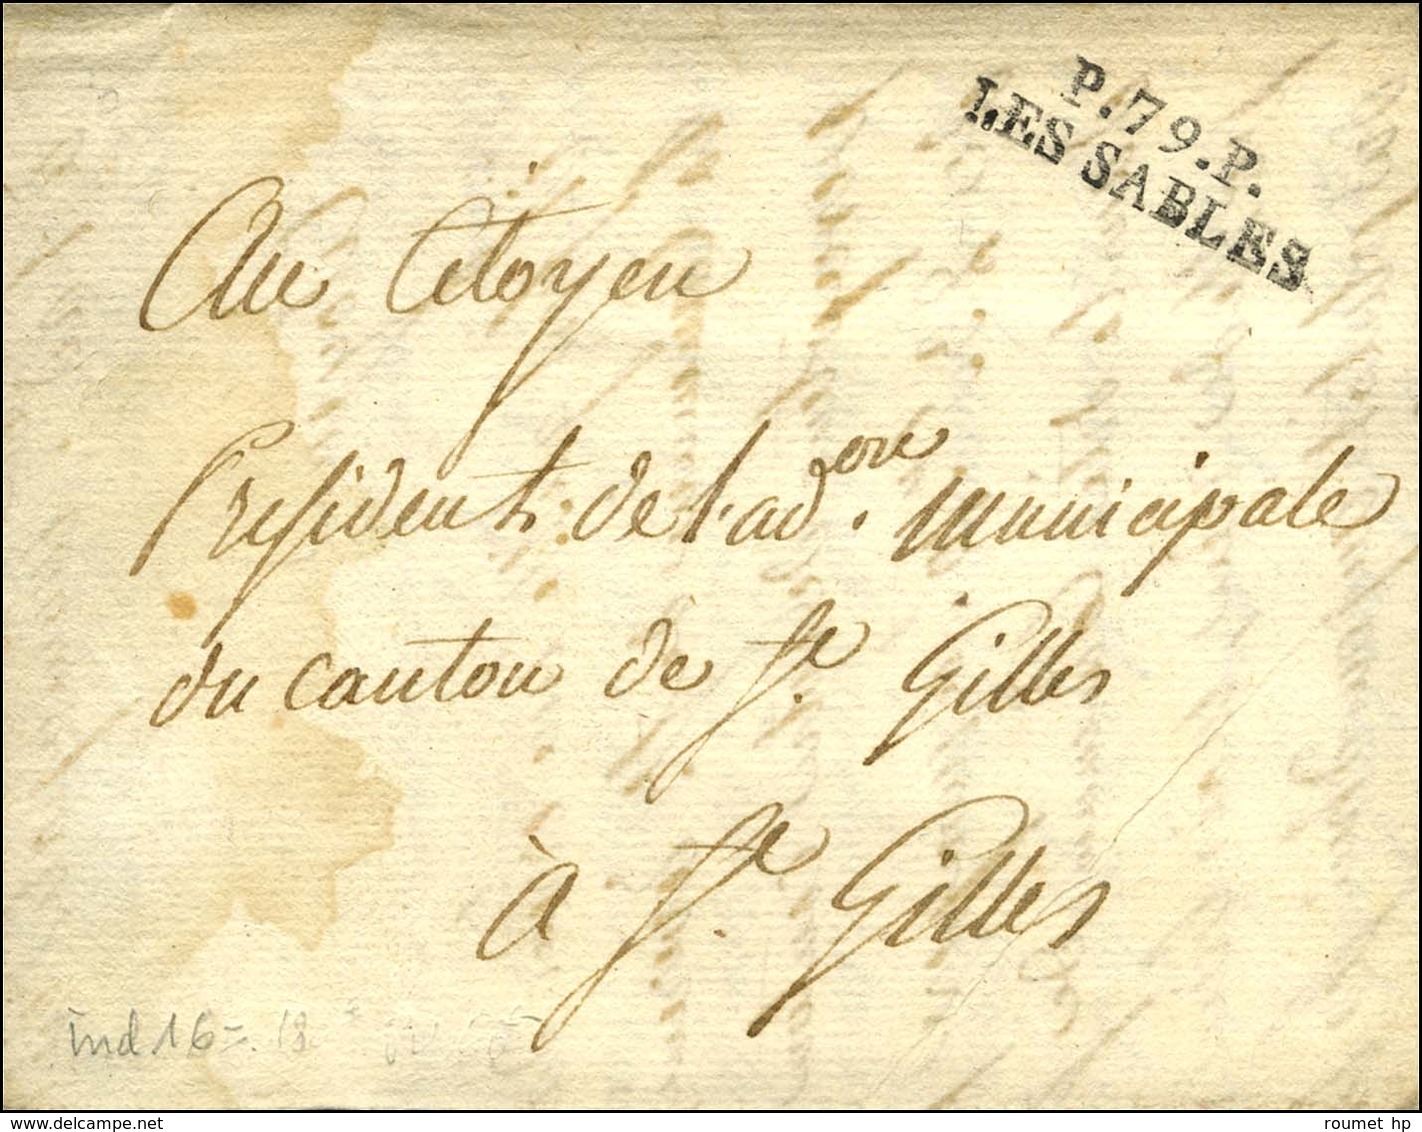 P.79.P.
LES SABLES
Au Citoyen
President de l'ad.on municipale
du canton de St. Gilles
à St. Gilles
ind 16 =
www.delcampe.net
roumet hp